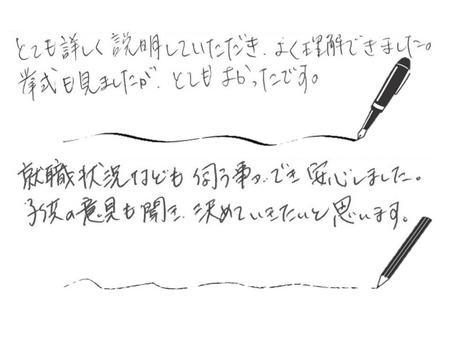 とても詳しく説明していただき、よく理解できました。
挙式も見ましたが、とてもよかったです。
就職状況なども伺う事ができ安心しました。
子供の意見も聞き、決めていきたいと思います。